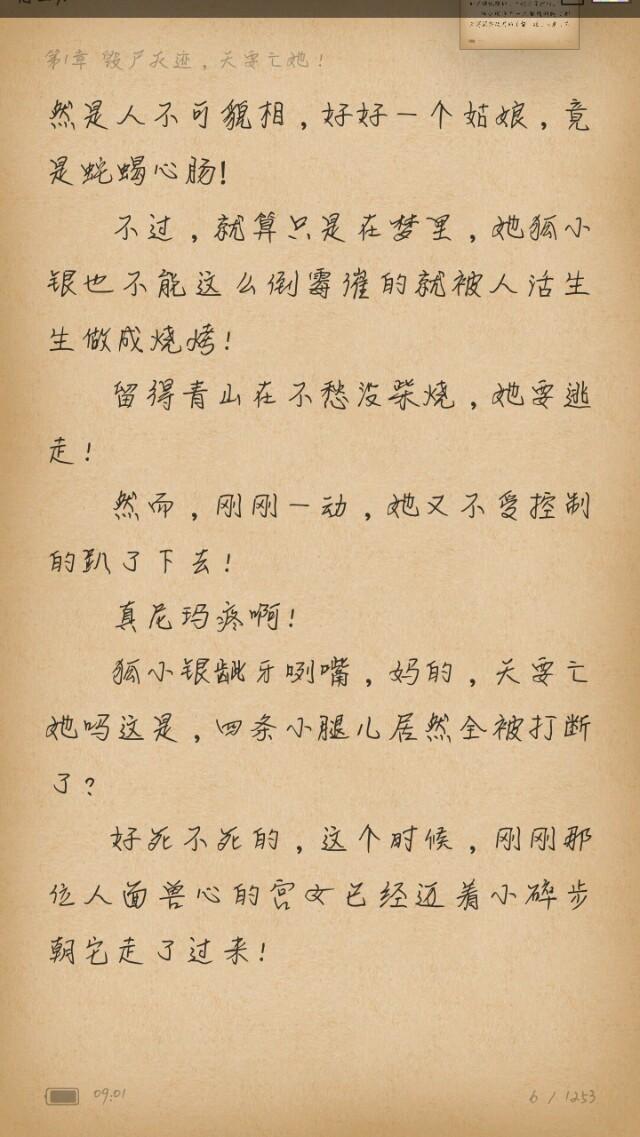 第1章 毁尸灭迹，天要亡她！
然是人不可貌相，好好一个姑娘，竟
是蛇蝎心肠！
不过，就算只是在梦里，她狐小
银也不能这么倒霉催的就被人活生
生做成烧烤！
留得青山在不愁没柴烧，她要逃
走！
然而，刚刚一动，她又不受控制
的趴了下去！
真尼玛疼啊！
狐小银龇牙咧嘴，妈的，天要亡
她吗这是，四条小腿儿居然全被打断
了？
好死不死的，这个时候，刚刚那
位人面兽心的宫女已经迈着小碎步
朝它走了过来！
09:01
6 / 1253